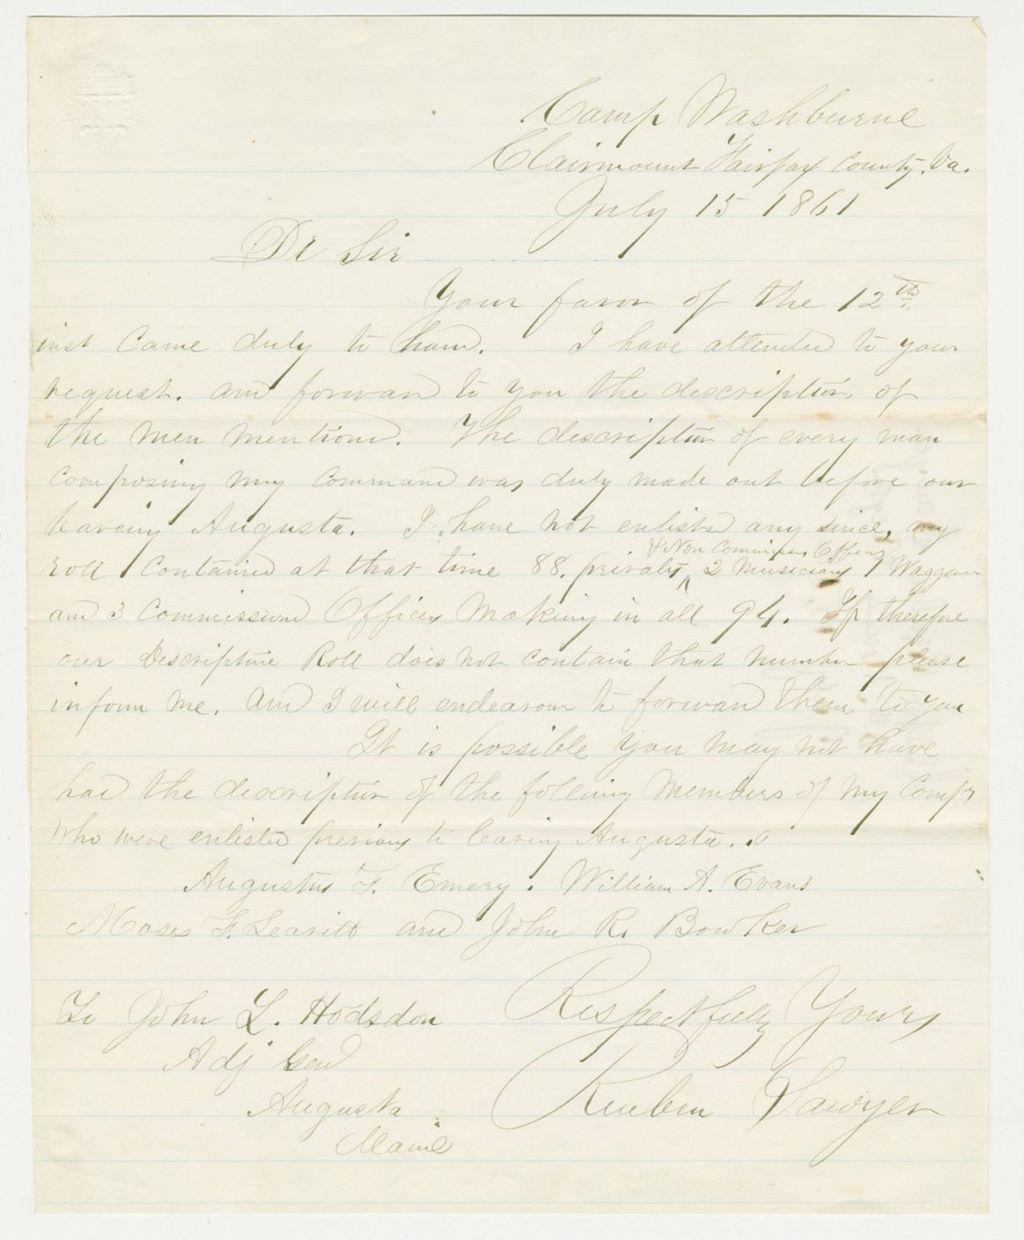 Camp Washburne
Clairmount Fairfax County. Va.
July 15 1861
Dr Sir
Your favor of the 12th
inst came duly to hand. I have attended to your
request. and forward to you the description of
the men mentioned. The description of every man
composing my command was duly made out before our
leaveing Augusta. I have not enlisted any since, my
& Non Commission Officers
roll contained at that time 88. privates 2 Musicians 1 Waggoner
and 3 Commissioned Officers Making in all 94. If therefore
our Descriptive Roll does not contain that number please
inform me. And I will endeavour to forward them to you
It is possible you may not have
had the description of the following Members of my Compy
Who were enlisted previous to leaving Augusta.
Augustus F. Emery. William A. Evans
Moses F. Leavitt and John R. Bowker
Respectfully Yours
To John L. Hodsdon
Adj Genl
Reuben Sawyer
Augusta
Maine